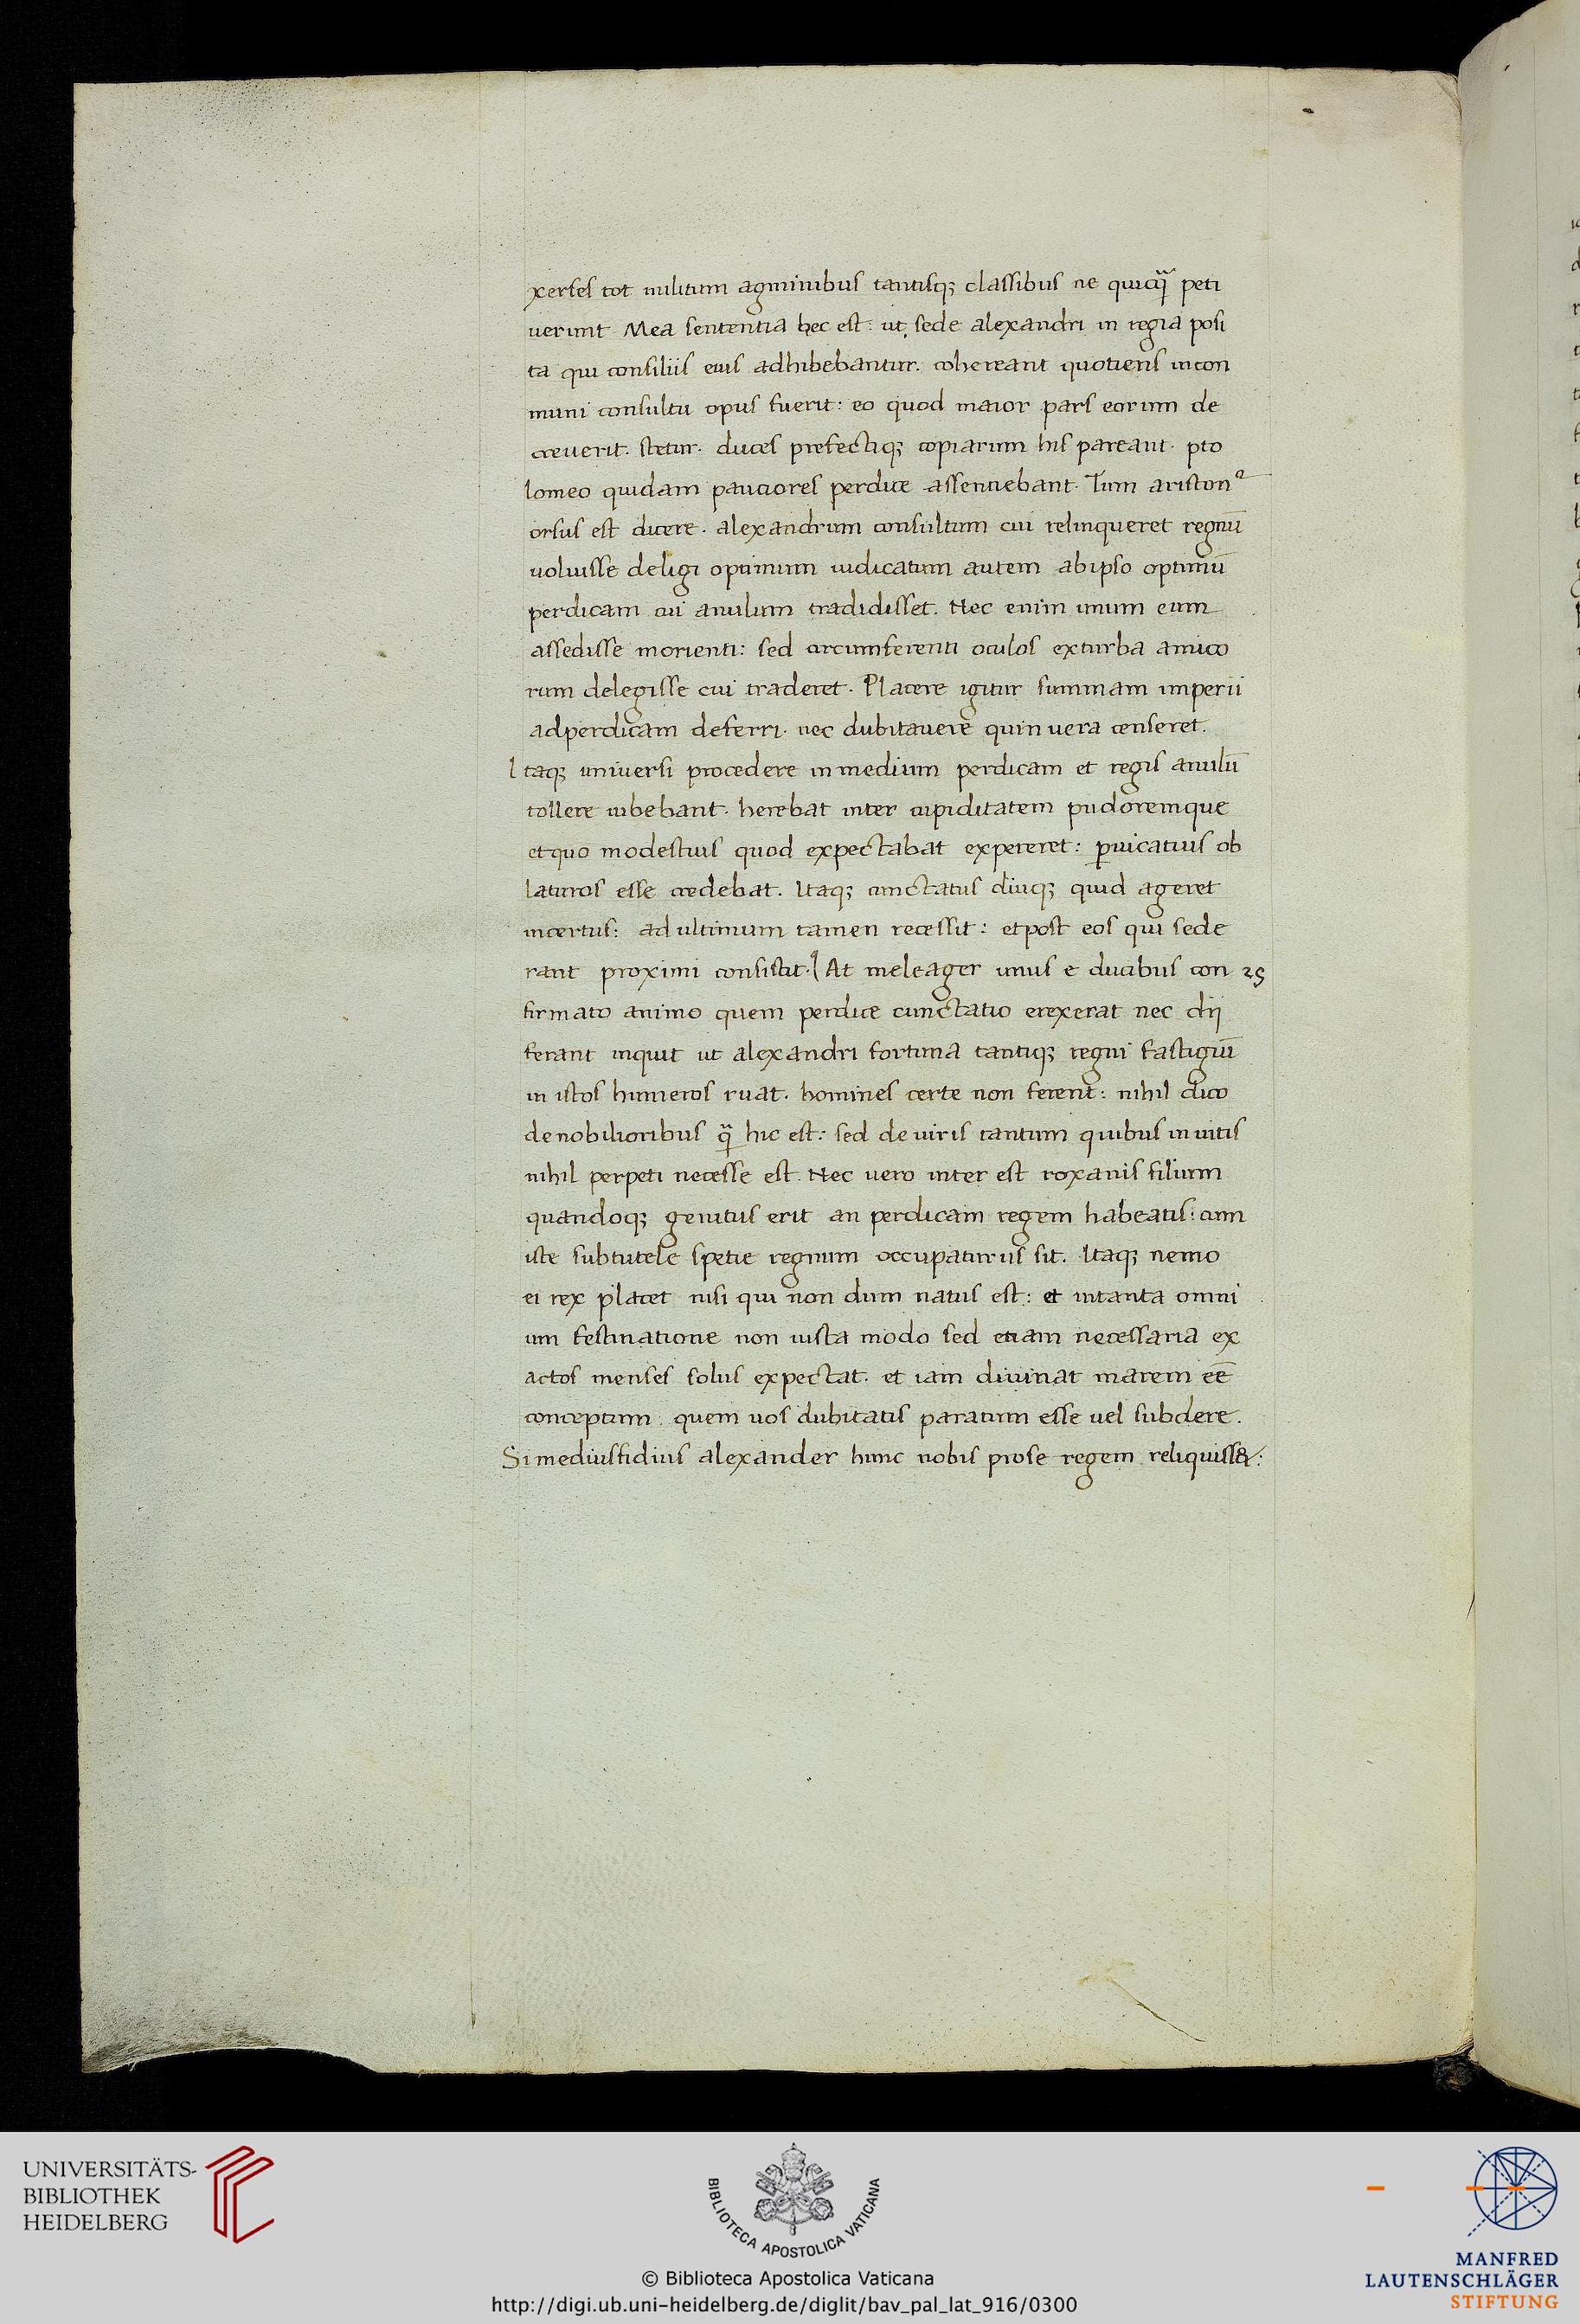 xerses tot militum agminibus tantisq; classibus ne quicq̃ peti
uerunt Mea sententia hec est: ut sede alexandri in regia posi
ta qui consiliis eius adhibebantur. cohereant quotiens incon
muni consultu opus fuerit: eo quod maior pars eorum de
creuerit. stetur. duces prefectiq; copiarum his pareant. pto
lomeo quidam pauciores perdice assentiebant. Tum ariston
orsus est dicere. alexandrum consultum cui relinqueret regnū
uoluisse deligi optimum iudicatum autem abipso optimū
perdicam cui anulum tradidisset. Nec enim unum eum
assedisse morienti: sed circumferenti oculos exturba amico
rum delegisse cui traderet. Placere igitur summam imperii
adperdicam deferri. nec dubitauere quin uera censeret.
Itaq; uniuersi procedere in medium perdicam et regis anulū
tollere iubebant. herebat inter cupiditatem pudoremque
etquo modestius quod expectabat expereret: ꝑuicatius ob
laturos esse credebat. Itaq; cunctatus diuq; quid ageret
incertus: ad ultimum tamen recessit: etpost eos qui sede
rant proximi consistit. At meleager unus e ducibus con 25
firmato animo quem perdice cunctatio erexerat nec dij
ferant inquit ut alexandri fortuna tantiq; regni fastigiū
in istos humeros ruat. homines certe non ferent: nihil dico
denobilioribus q̃ hic est: sed de uiris tantum quibus in uitis
nihil perpeti necesse est. Nec uero inter est roxanis filium
quandoq; genitus erit an perdicam regem habeatis: cum
iste subtutele spetie regnum occupaturus sit. Itaq; nemo
ei rex placet nisi qui non dum natus est: et intanta omni
um festinatione non iusta modo sed etiam necessaria ex
actos menses solus expectat. et iam diuinat marem eē
conceptum: quem uos dubitatis paratum esse uel subdere.
Si mediusfidius alexander hunc nobis prose regem reliquiss&:
UNIVERSITÄTS-
BIBLIOTHEK
HEIDELBERG
BIBLIOTECA APOSTOLICA VATICANA
© Biblioteca Apostolica Vaticana
http://digi.ub.uni-heidelberg.de/diglit/bav_pal_lat_916/0300
MANFRED
LAUTENSCHLÄGER
STIFTUNG